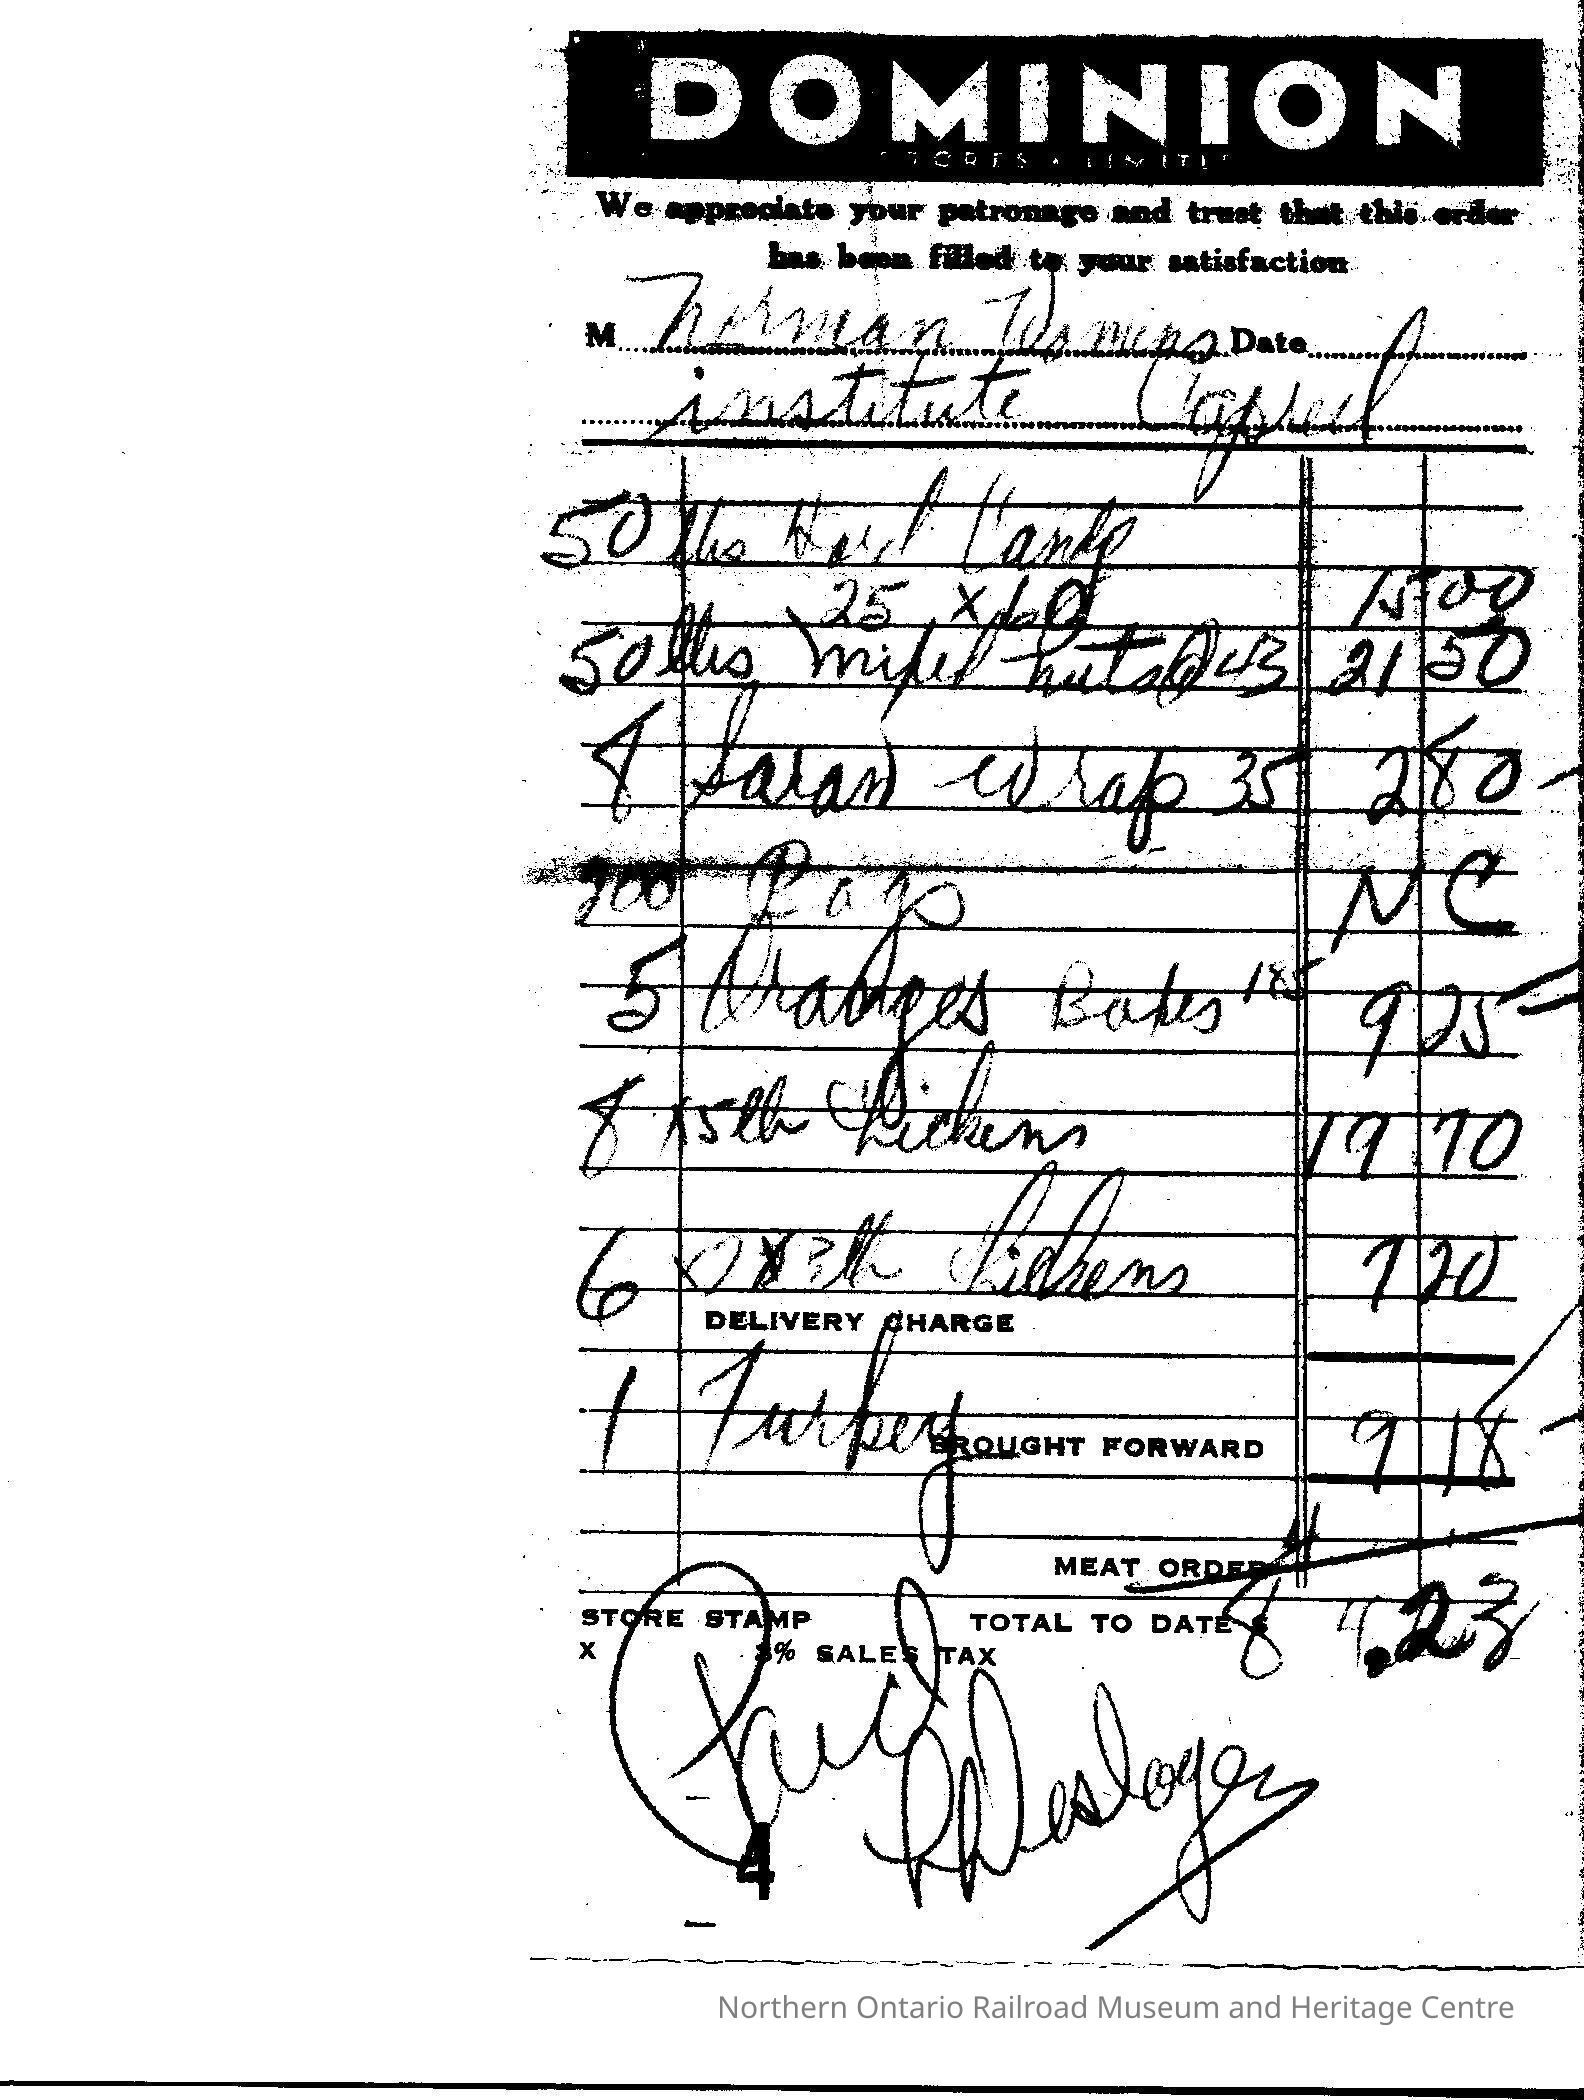 DOMINION
STORES LIMITED
We appreciate your patronage and trust that this order
has been filled to your satisfaction
M Norman Womens Date
institute Capreol
50 lbs Hard Candy
25 x 60 15 00
50 lbs mixed nuts @ 43 21 50
8 Saran Wrap 35 2 80
200 Bags N C
5 Oranges Boxes 185 9 25
8 x 5 lb Chickens 19 70
6 x 3 lb Chickens 7 20
DELIVERY CHARGE
1 Turkey 9 18
BROUGHT FORWARD
MEAT ORDER
STORE STAMP TOTAL TO DATE $ 84.23
X 3% SALES TAX
Paid
R Desloges
4
Northern Ontario Railroad Museum and Heritage Centre